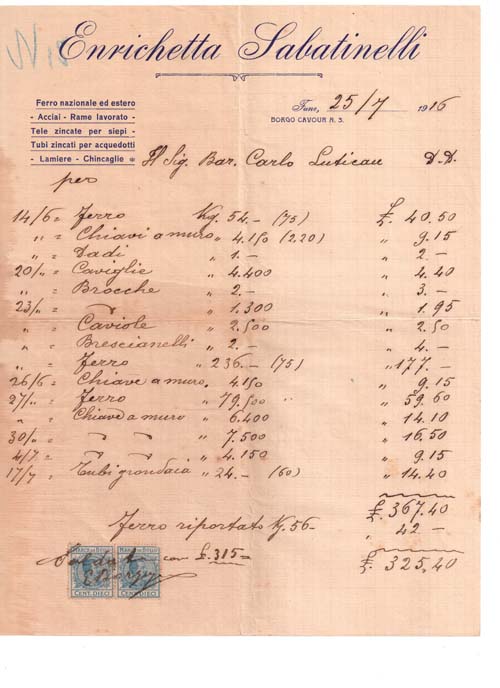 N 15
Enrichetta Sabatinelli
Ferro nazionale ed estero
- Acciai - Rame lavorato -
Tele zincate per siepi -
Tubi zincati per acquedotti
- Lamiere - Chincaglie
Fano, 25/7 1916
BORGO CAVOUR N. 3.
Il Sig. Bar. Carlo D.D.
per
14/6 = Ferro Kg. 54.- (75) £ 40.50
" = Chiavi a muro " 4.150 (2,20) " 9.15
" = Dadi " 1.- " 2.-
20/" = Caviglie " 4.400 " 4.40
" = Brocche " 2.- " 3.-
23/" = " 1.300 " 1.95
" = Caviole " 2.500 " 2.50
" = Brescianelli " 2.- " 4.-
" = Ferro " 236.- (75) " 177.-
26/6 = Chiave a muro, 4.150 " 9.15
27/" = Ferro " 79.500 " " 59.60
" = Chiave a muro " 6.400 " 14.10
30/" = " 7.500 " 16,50
4/7 = " 4.150 " 9.15
17/7 = Tubi grondaia " 24.- (60) " 14.40
£ 367.40
Ferro riportato Kg. 56- " 42 -
£. 325,40
con £. 315=
MARCA DA BOLLO MARCA DA BOLLO
CENT. DIECI CENT. DIECI